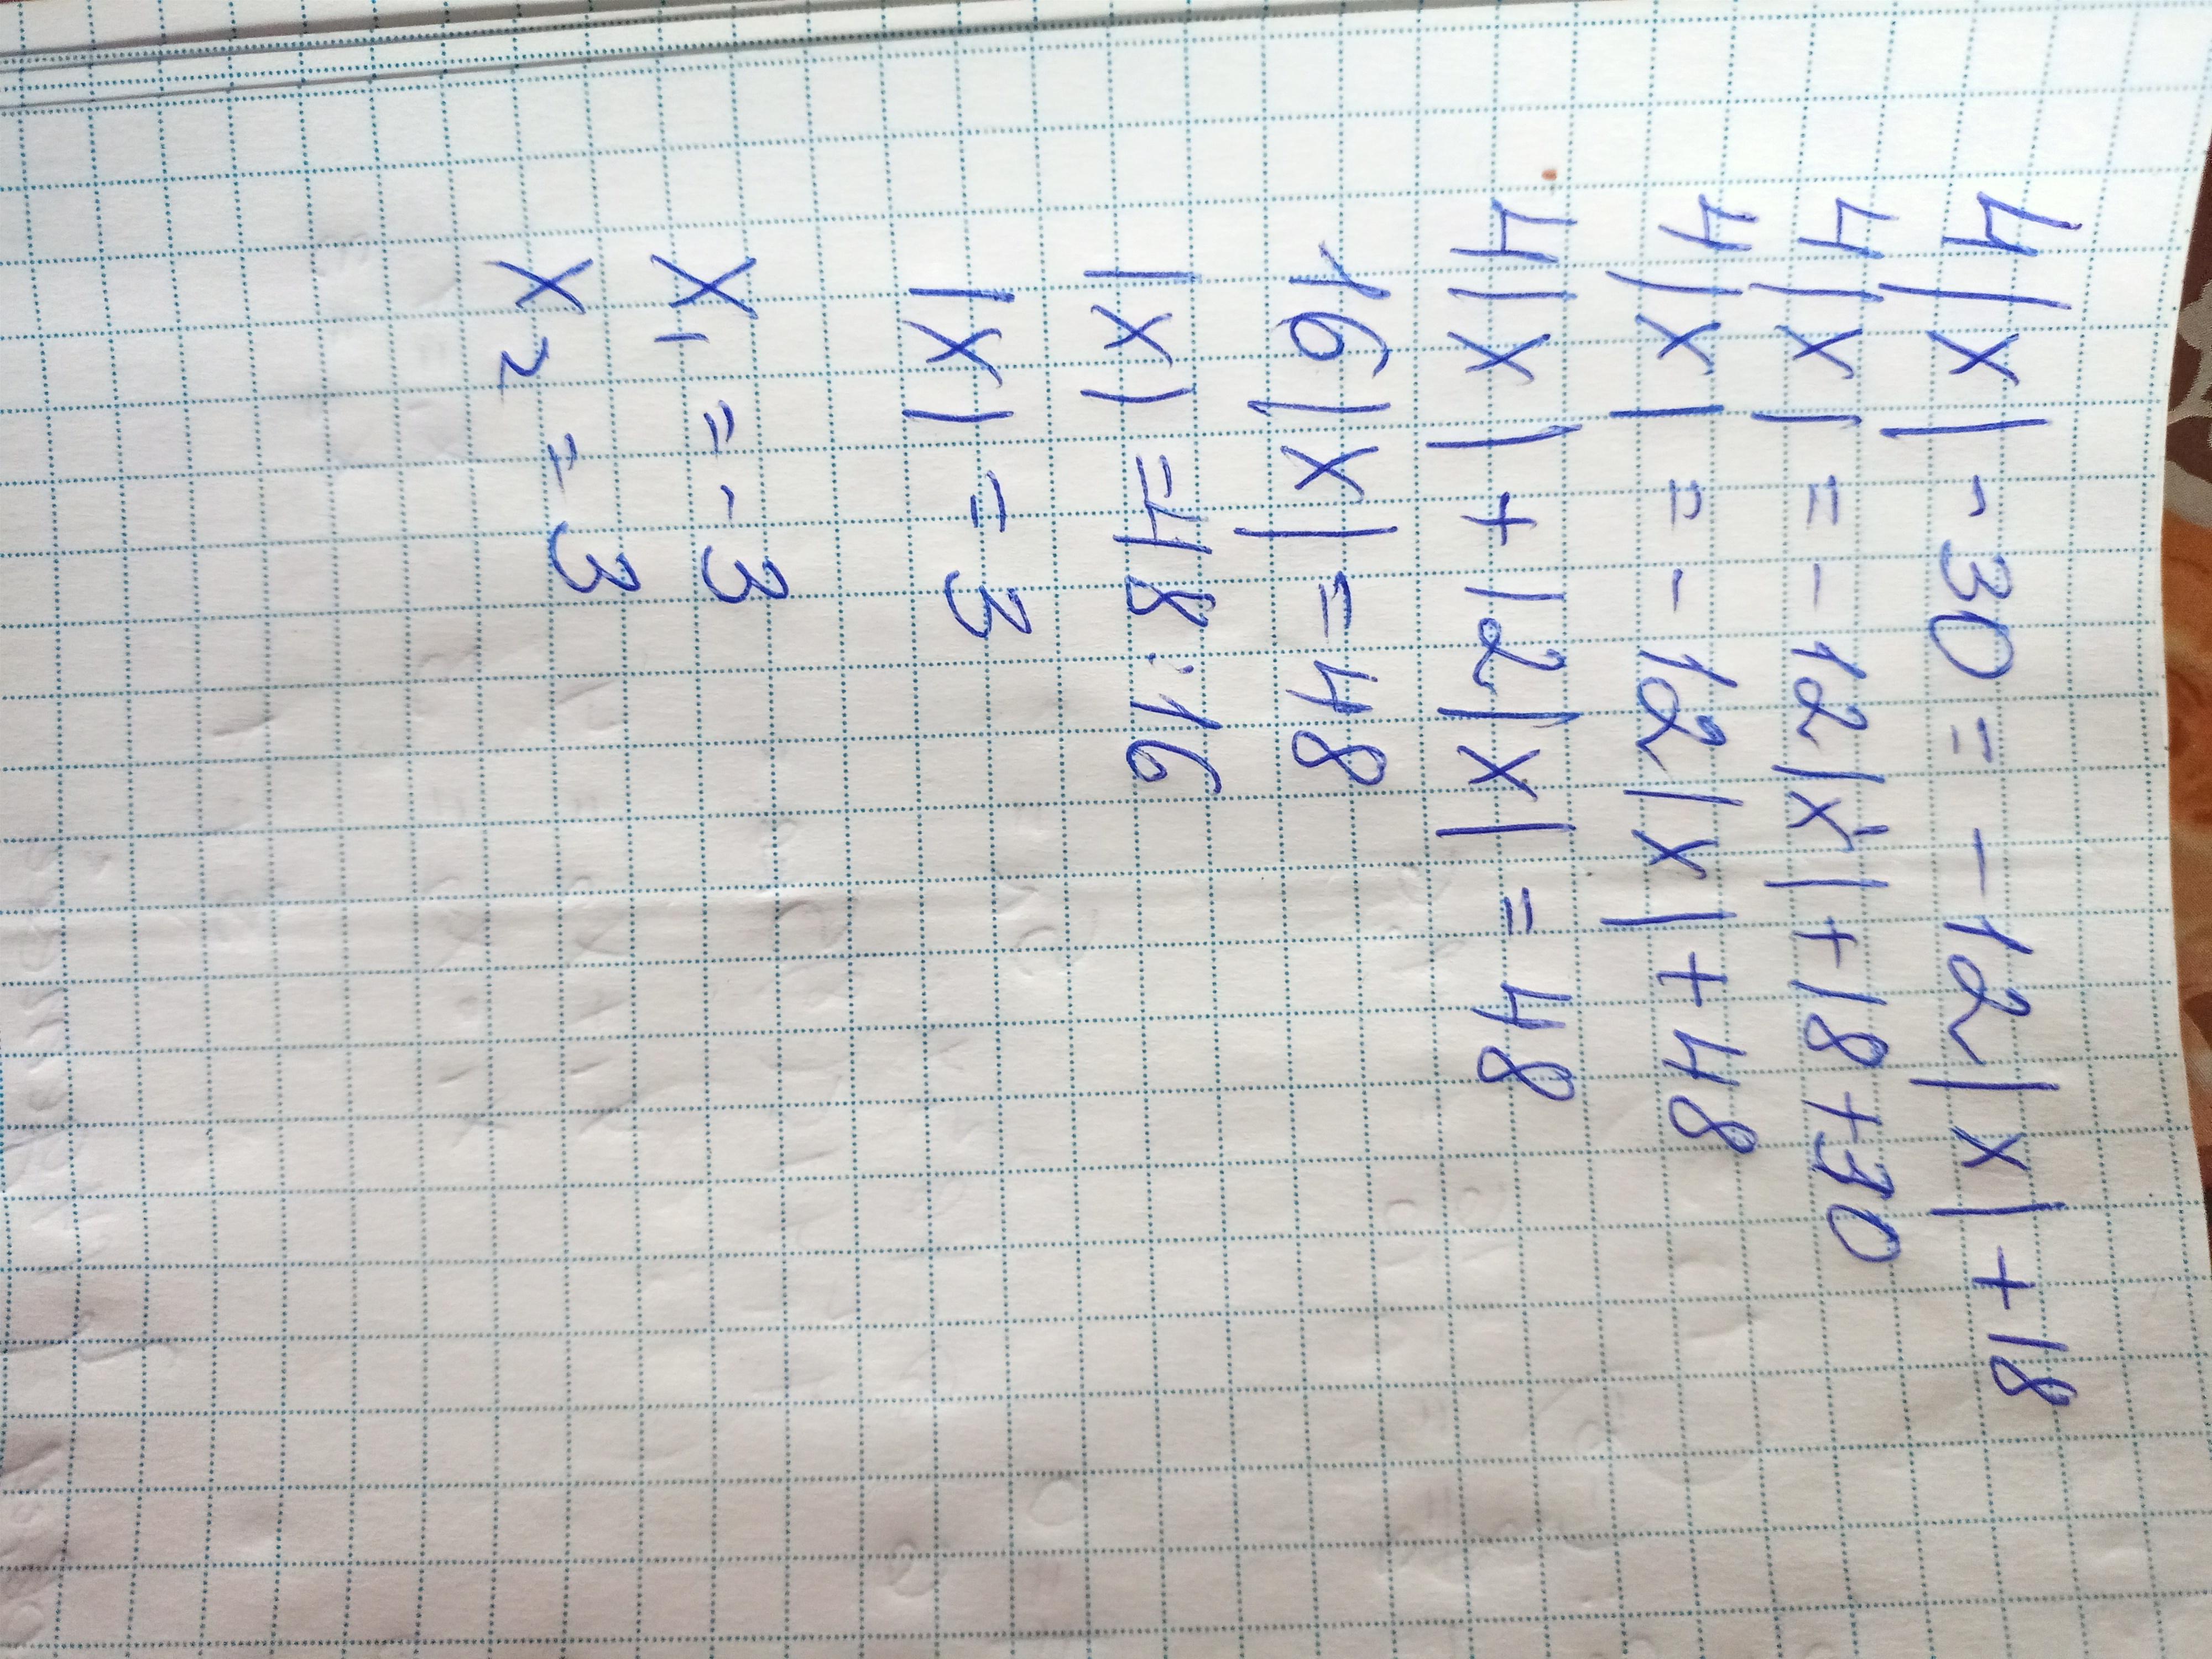 4|x| - 30 = -12|x| + 18
4|x| = -12|x| + 18 + 30
4|x| = -12|x| + 48
4|x| + 12|x| = 48
16|x| = 48
|x| = 48 : 16
|x| = 3
x₁ = -3
x₂ = 3